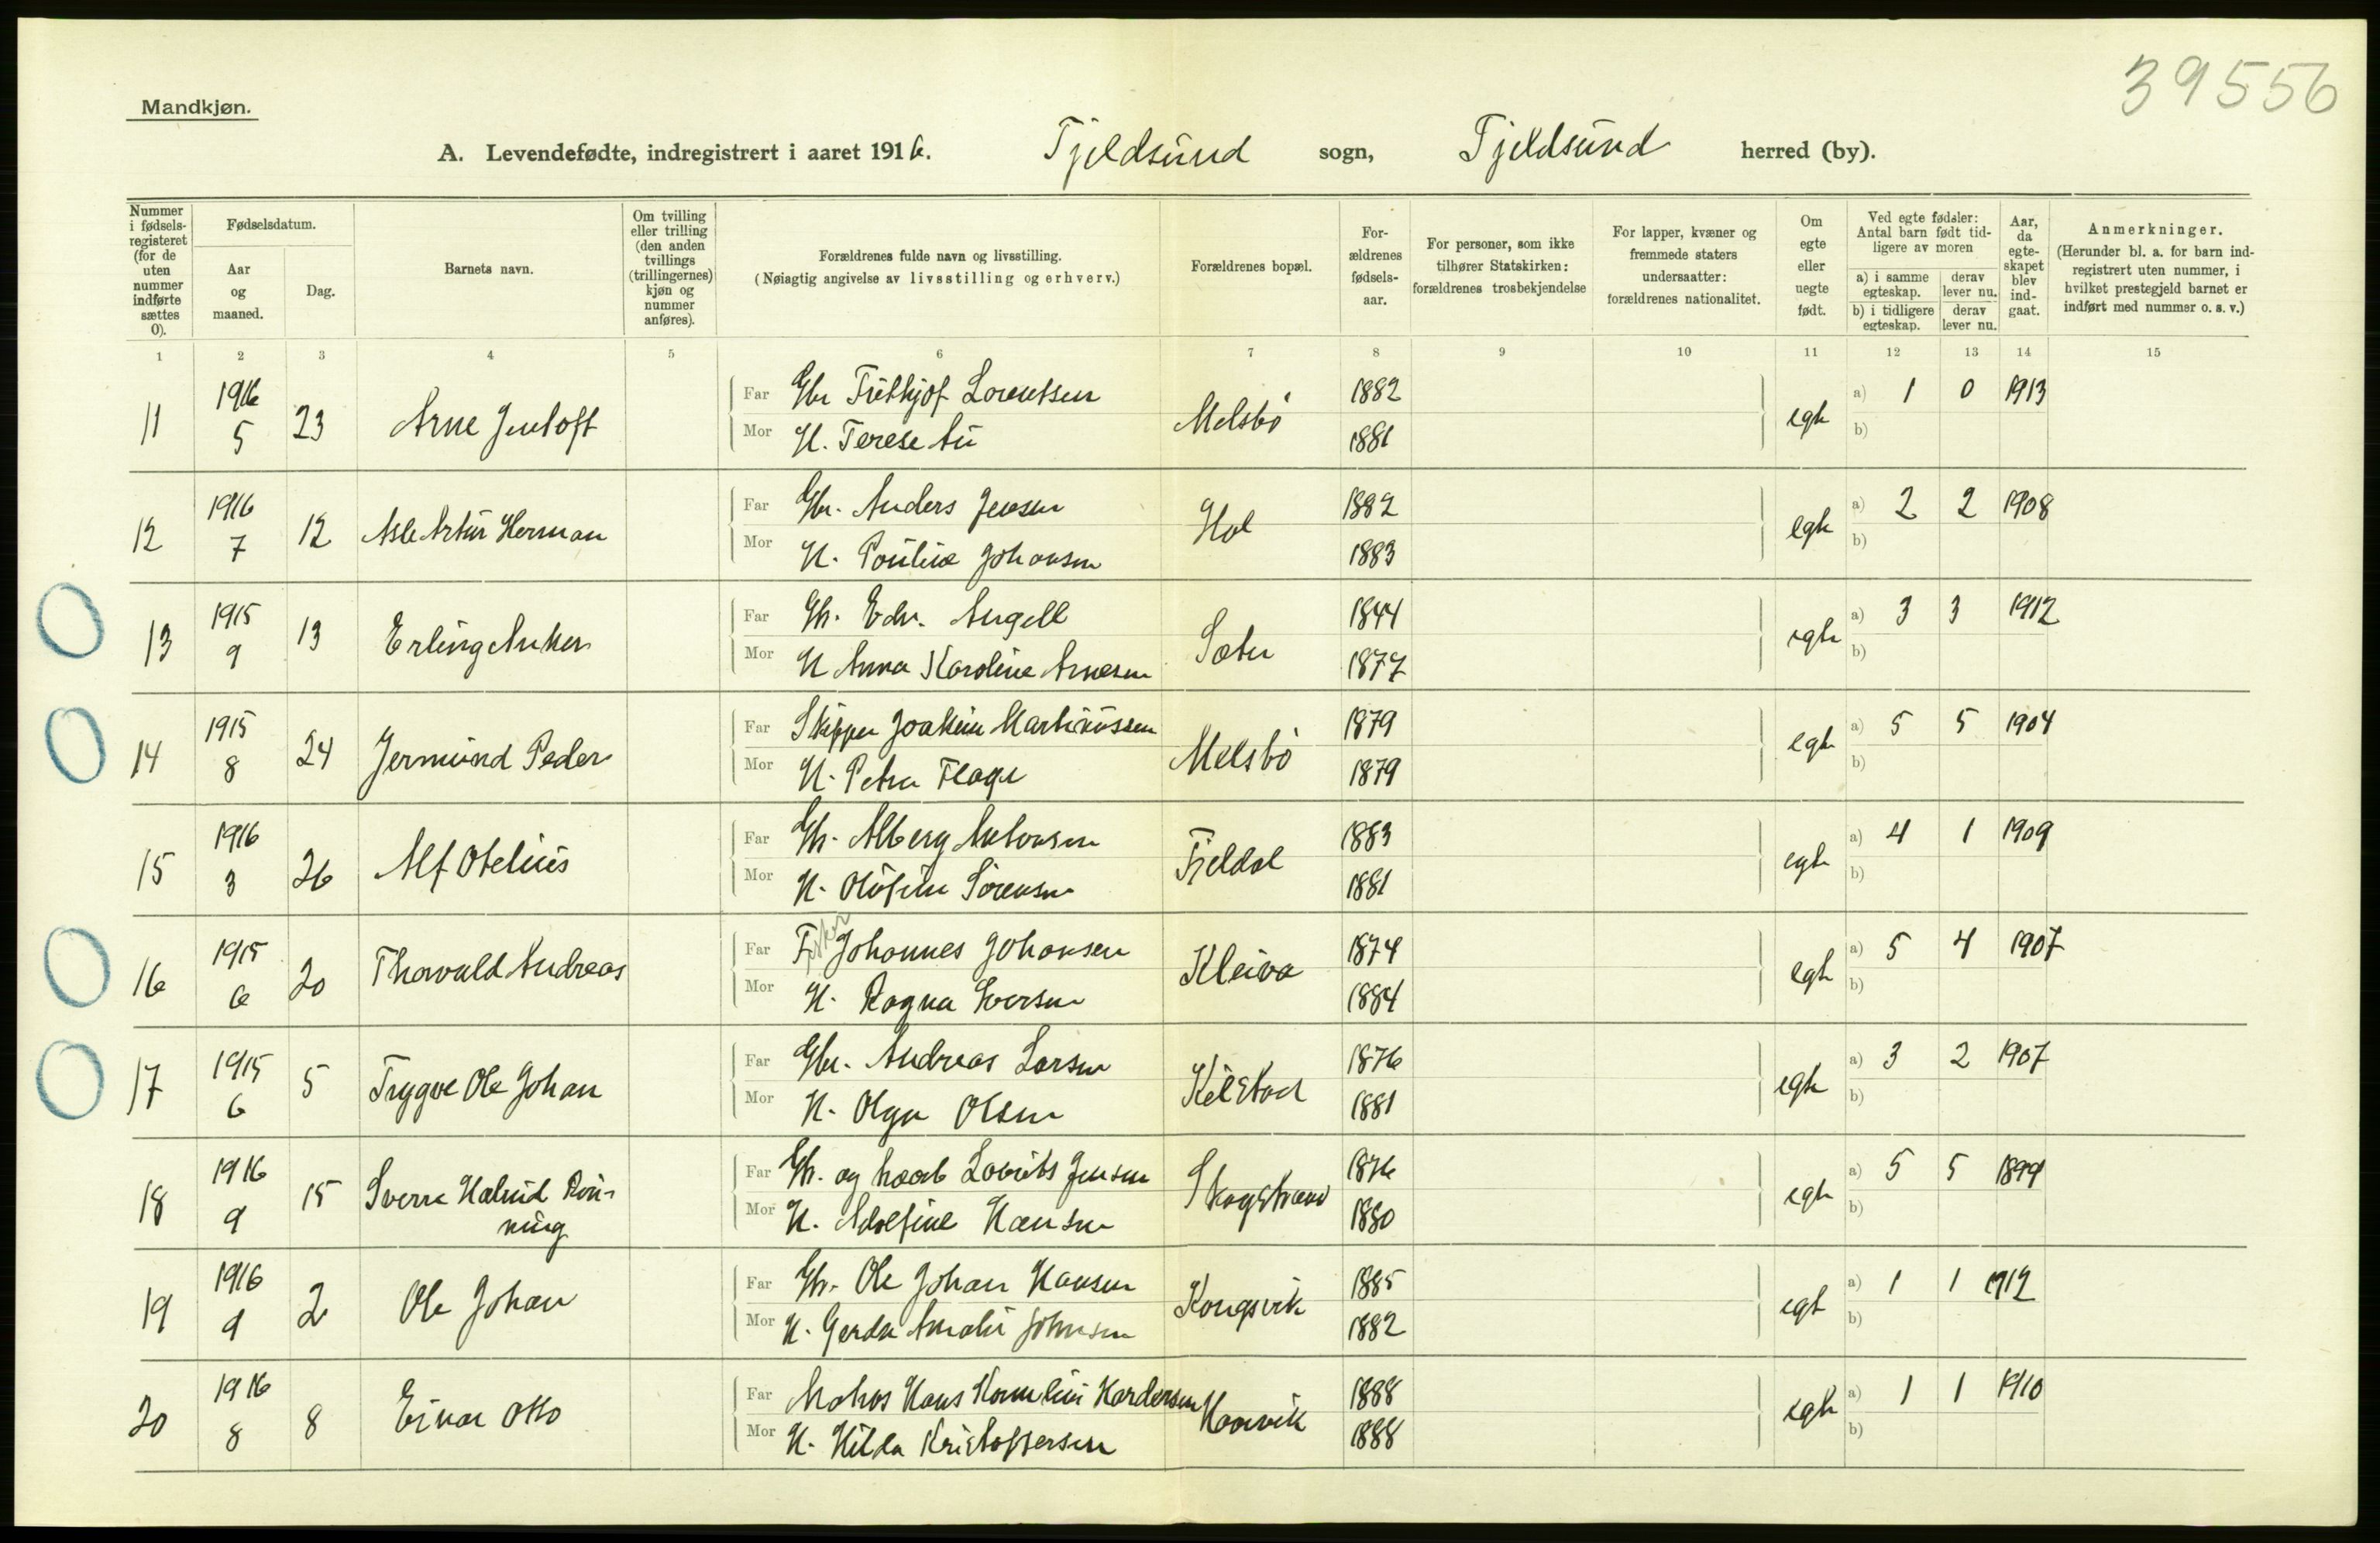 39556
Mandkjøn.
A. Levendefødte, indregistrert i aaret 1916. Tjeldsund sogn, Tjeldsund herred (by).
Nummer i fødsels-registeret (for de uten nummer indførte sættes 0).
Fødselsdatum.
Aar og maaned.
Dag.
Barnets navn.
Om tvilling eller trilling (den anden tvillings (trillingernes) kjøn og nummer anføres).
Forældrenes fulde navn og livsstilling.
(Nøiagtig angivelse av livsstilling og erhverv.)
Forældrenes bopæl.
For-ældrenes fødsels-aar.
For personer, som ikke tilhører Statskirken: forældrenes trosbekjendelse
For lapper, kvæner og fremmede staters undersaatter: forældrenes nationalitet.
Om egte eller uegte født.
Ved egte fødsler: Antal barn født tid-ligere av moren
a) i samme egteskap. derav lever nu.
b) i tidligere egteskap. derav lever nu.
Aar, da egte-skapet blev ind-gaat.
Anmerkninger.
(Herunder bl. a. for barn ind-registrert uten nummer, i hvilket prestegjeld barnet er indført med nummer o. s. v.)
1 2 3 4 5 6 7 8 9 10 11 12 13 14 15
11 1916 5 23 Arne Jentoft
Far Gbr Frithjof Lorentsen Melsbö 1882 egte a) 1 0 1913
Mor H. Terese 1881 b)
12 1916 7 12 Asle Artur Herman
Far Gbr. Anders Jensen Hol 1882 egte a) 2 2 1908
Mor H. Pauline Johansen 1883 b)
13 1915 9 13 Erling Anker
Far Gb. Edv. Angell Sæter 1844 egte a) 3 3 1912
Mor H Anna Karoline Arnesen 1877 b)
14 1915 8 24 Jermund Peder
Far Skipper Joakim Martinussen Melsbö 1879 egte a) 5 5 1904
Mor H. Petra 1879 b)
15 1916 3 26 Alf Otelius
Far Gb. Alberg Antonsen Fjeldal 1883 egte a) 4 1 1909
Mor H. Olufine Sörensen 1881 b)
16 1915 6 20 Thorvald Andreas
Far Fisker Johannes Johansen Kleiva 1874 egte a) 5 4 1907
Mor H. Ragna Iversen 1884 b)
17 1915 6 5 Trygve Ole Johan
Far Gbr. Andreas Larsen Kilstad 1876 egte a) 3 2 1907
Mor H. Olga Olsen 1881 b)
18 1916 9 15 Sverre Halvid Rön-
ning
Far Gb. og Lovits Jensen Skogstrand 1876 egte a) 5 5 1899
Mor H. Adolfine Hansen 1880 b)
19 1916 9 2 Ole Johan
Far Gb. Ole Johan Hansen Kongsvik 1885 egte a) 1 1 1912
Mor H. Gerda Amalie Johnsen 1882 b)
20 1916 8 8 Einar Otto
Far Matros Hans Kornelius Hardersen Haarvik 1888 egte a) 1 1 1910
Mor H. Hilda Kristoffersen 1888 b)